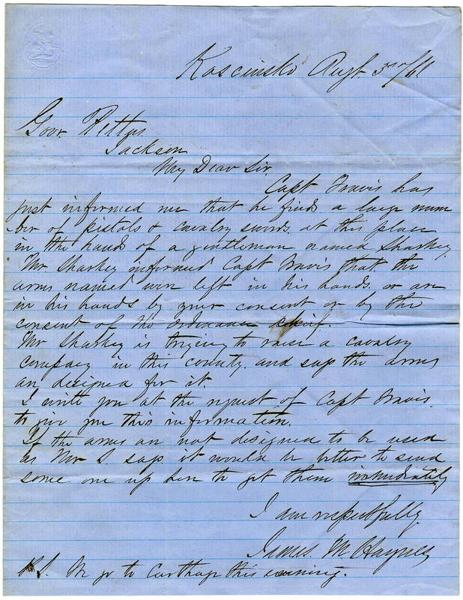 Koscinsko Augt 3rd /61
Govr Pettus
Jackson
My Dear Sir.
Capt Travis has
just informed me that he finds a large num
ber of pistols & cavalry swords at this place
in the hands of a gentleman named Sharkey
Mr Sharkey informed Capt Travis that the
arms named were left in his hands or are
in his hands by your consent or by the
consent of the ordinance
Mr Sharkey is trying to raise a cavalry
company in this county and says the arms
are designed for it
I write you at the request of Capt Travis
to give you this information.
If the arms are not designed to be used
as Mr S. says it would be better to send
some one up here to get them immediately
I am respectfully.
James M Haynes
P.S. We go to Carthage this evening.